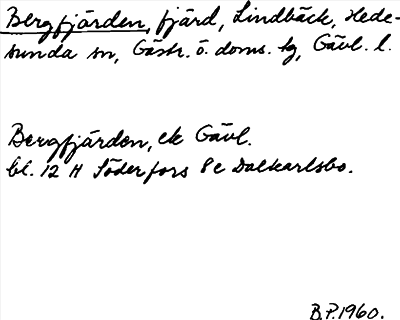 Bergfjärden, fjärd, Lindbäck, Hede-
sunda sn, Gästr. ö. doms. tg, Gävl. l.
Bergfjärden, ek Gävl.
bl. 12 H Söderfors 8c Dalkarlsbo.
B.P. 1960.